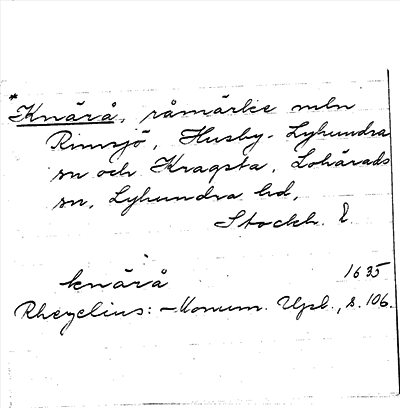 *Knärå, råmärke mln
Rimsjö, Husby-Lyhundra
sn och Kragsta, Lohärads
sn, Lyhundra hd,
Stockh. l.
knärå 1635
Rhezelius: Monum. Upl., s. 106.